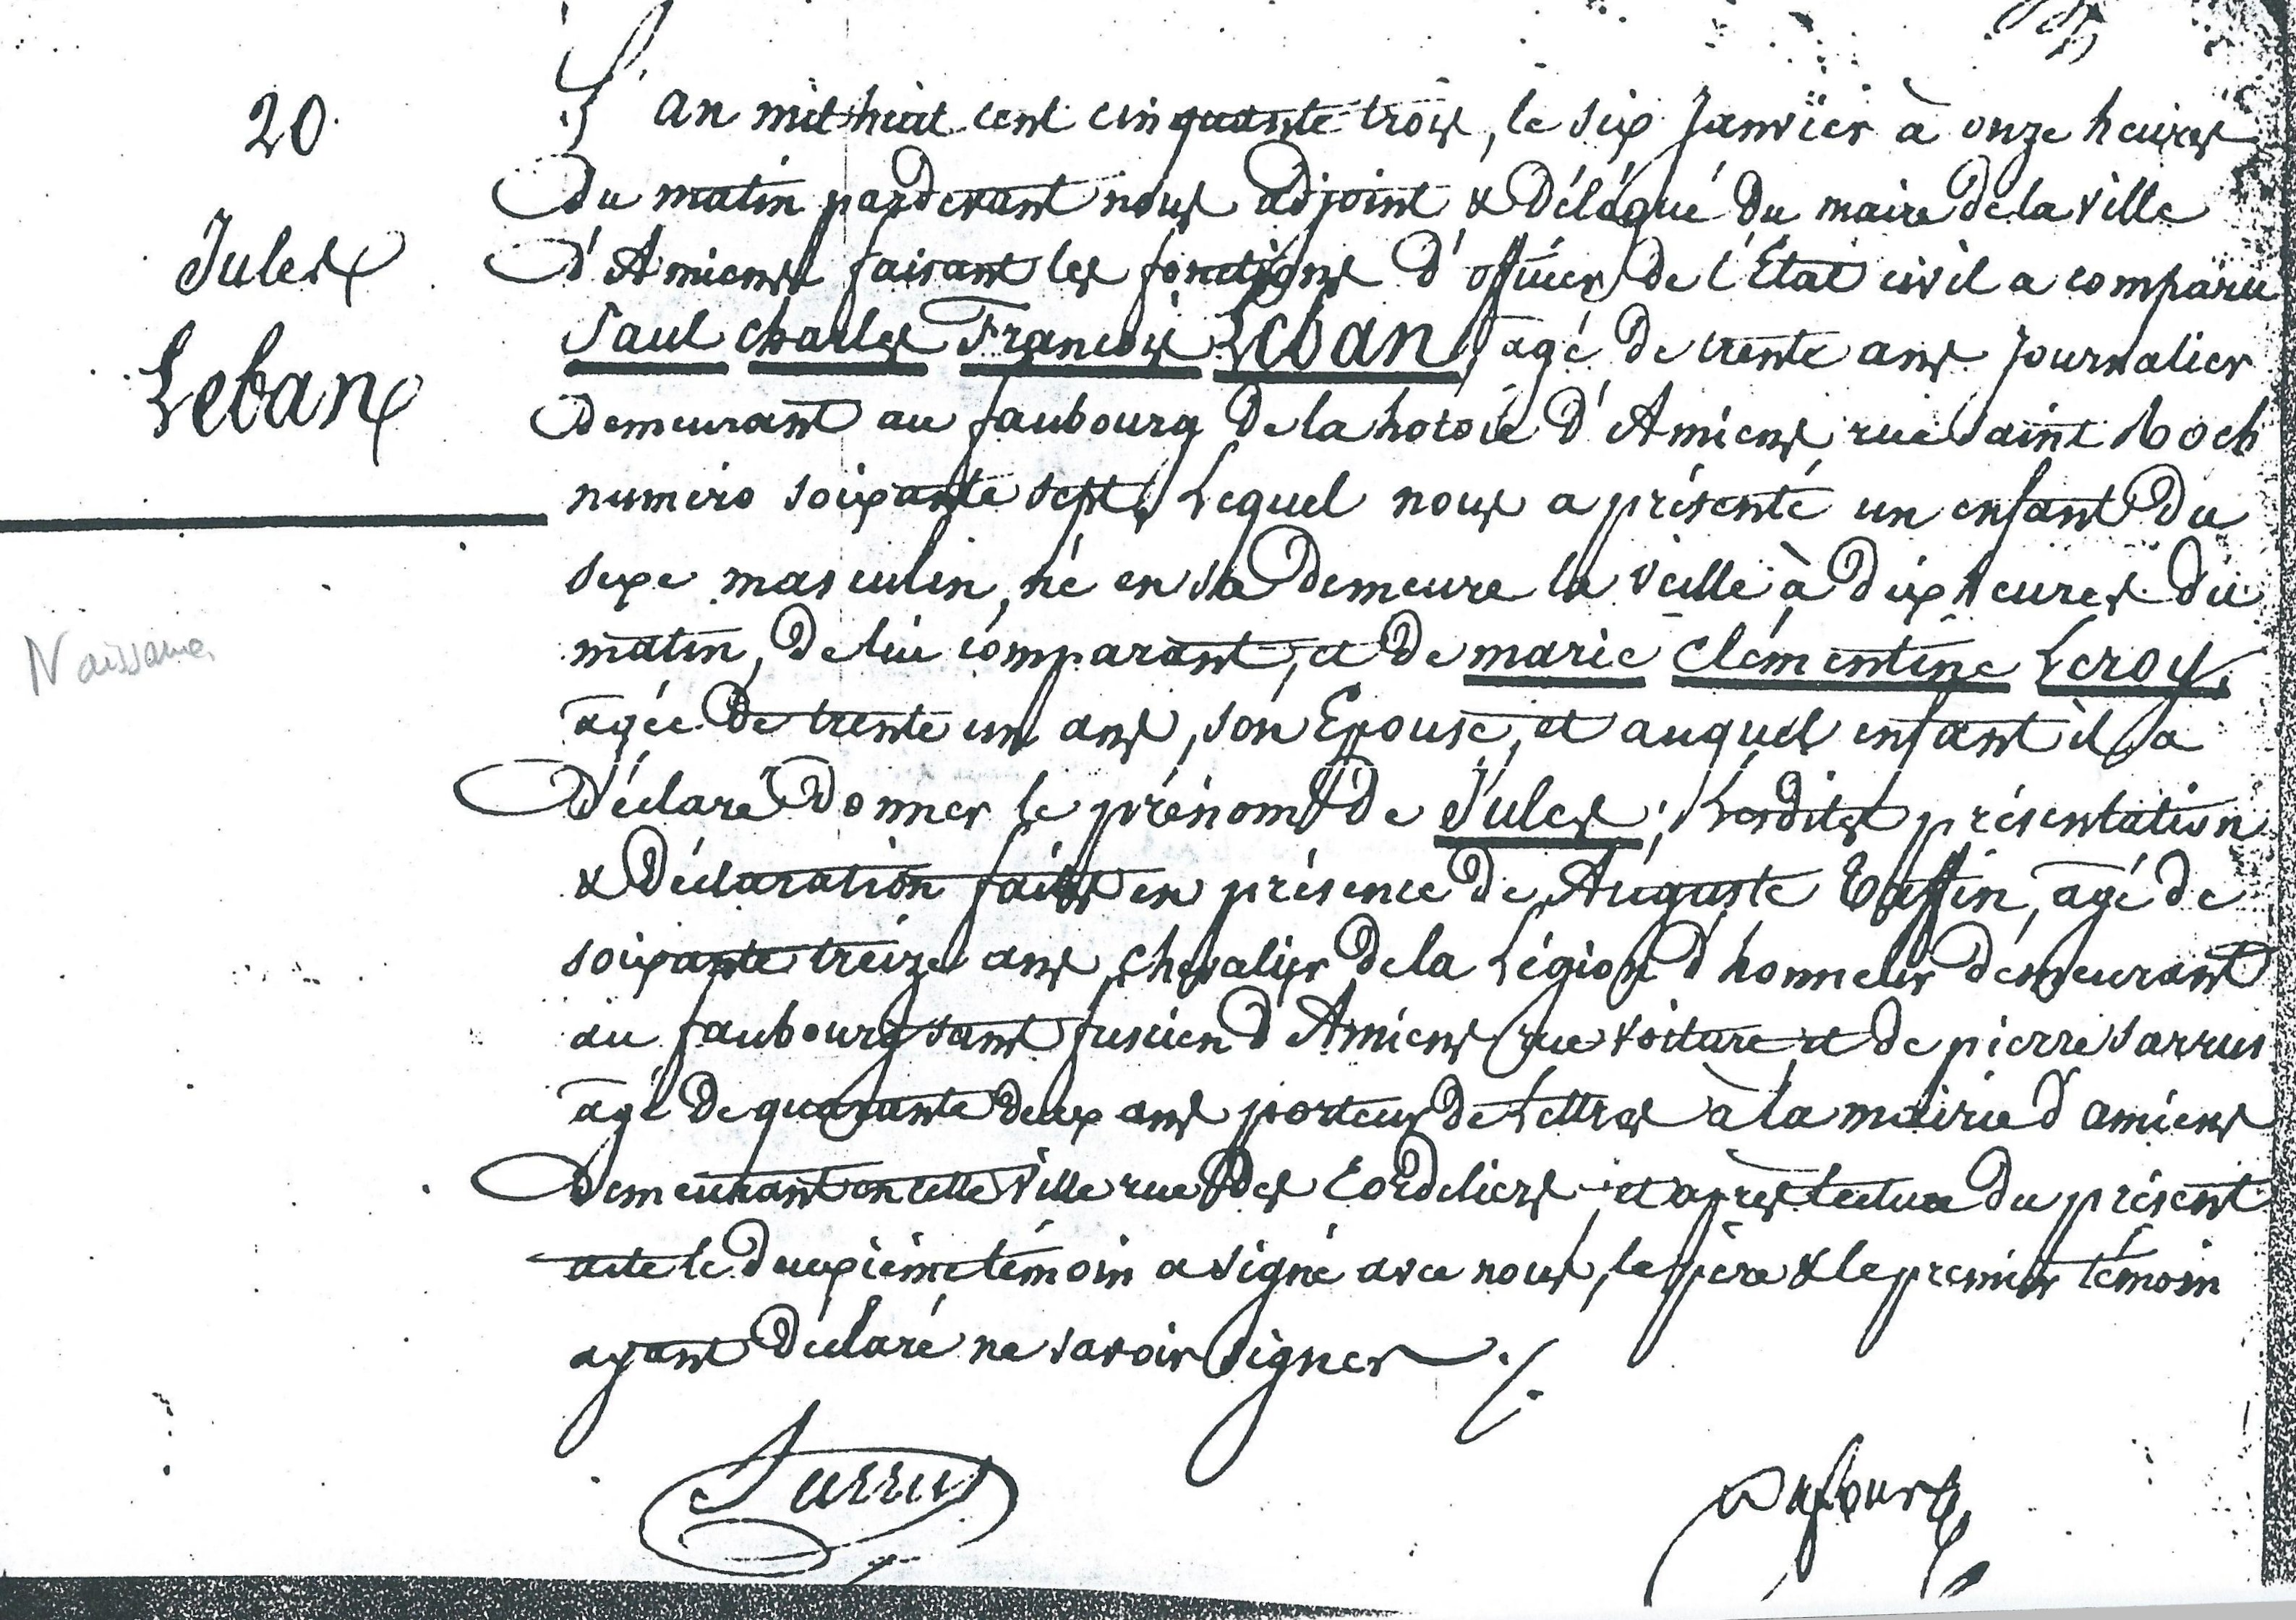 20
Jules
Leban
Naissance
L'an mil huit cent cinquante trois, le six Janvier à onze heures
Du matin pardevant nous adjoint & Délégué du maire de la ville
D'Amiens faisant les fonctions d'officier de l'Etat civil a comparu
Paul Charles François Leban, agé de trente ans Journalier
Demeurant au faubourg de la hotoie d'Amiens rue Saint Roch
numéro soixante sept, Lequel nous a présenté un enfant du
sexe masculin, né en sa Demeure la veille à dix heures du
matin, de lui comparant, et de marie Clémentine Leroy,
agée de trente un ans, son Epouse, et auquel enfant il a
Déclaré Donner le prénom de Jules; Lesdites présentation
& Déclaration faites en présence de Auguste Taffin, agé de
soixante treize ans, chevalier de la Légion d'honneur demeurant
au faubourg saint fuscien d'Amiens rue voiture, et de pierre sarrus
agé de quarante deux ans porteur de Lettres à la mairie d'amiens
Demeurant en cette ville rue des Cordeliers, et après lecture du présent
acte le deuxième témoin a signé avec nous, le père & le premier témoin
ayant Déclaré ne savoir signer ./.
Sarrus
Dufour